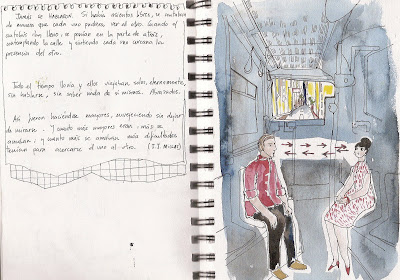 Jamás se hablaron. Si había asientos libres, se sentaban
de manera que cada uno pudiera ver al otro. Cuando el
autobús iba lleno, se ponían en la parte de atrás,
contemplando la calle y sintiendo cada uno cercana la
presencia del otro.
Todo el tiempo llovía y ellos viajaban solos, eternamente,
sin hablarse, sin saber nada de sí mismos. Abrazados.
Así fueron haciéndose mayores, envejeciendo sin dejar
de mirarse. Y cuanto más mayores eran, más se
amaban; y cuanto más se amaban más dificultades
tenían para acercarse el uno al otro. (J.J. Millás)